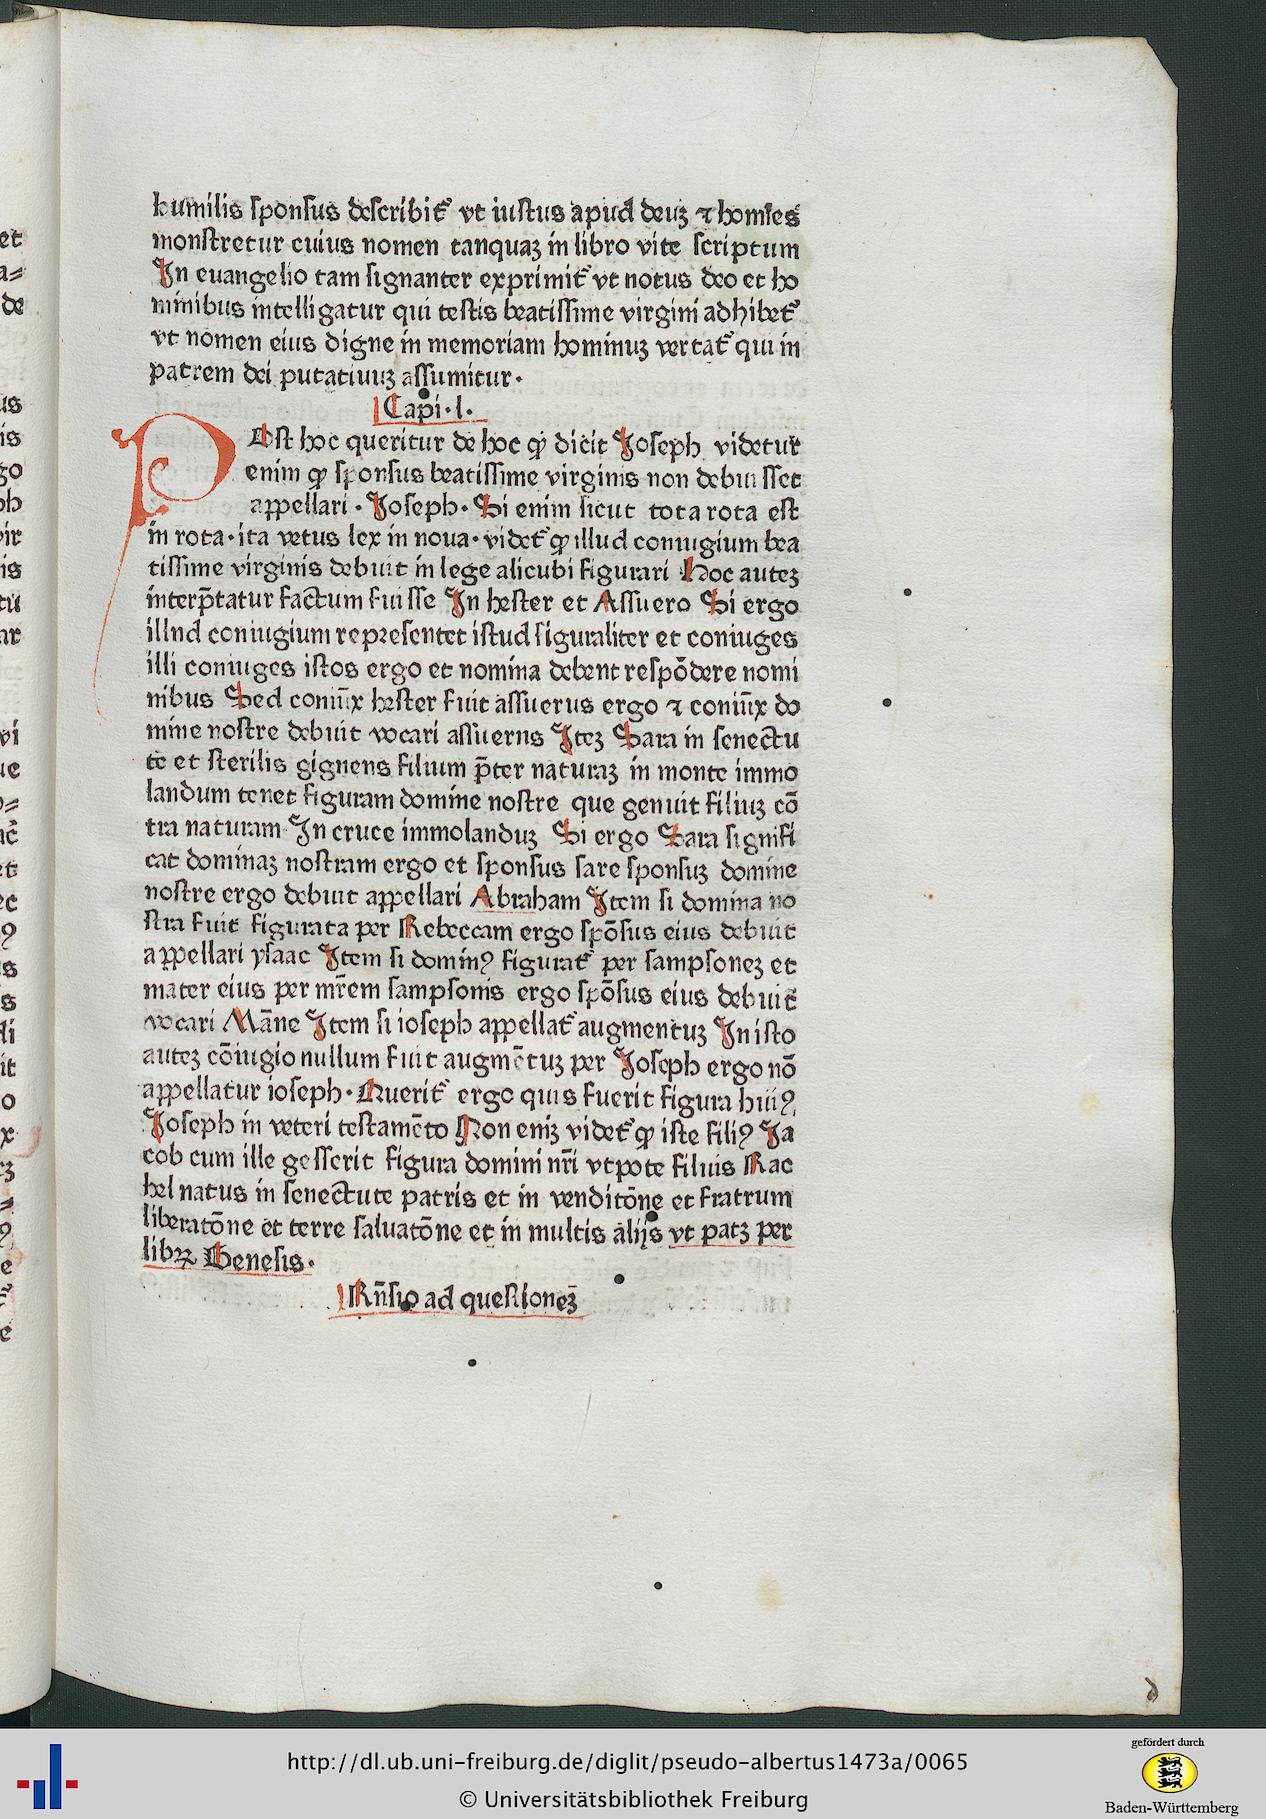 humilis sponsus describit᷑ vt iustus apud deuꝫ ⁊ homĩes
monstretur cuius nomen tanquaꝫ in libro vite scriptum
In euangelio tam signanter exprimit᷑ vt notus deo et ho
minibus intelligatur qui testis beatissime virgini adhibet᷑
vt nomen eius digne in memoriam hominuꝫ vertat᷑ qui in
patrem dei putatiuuꝫ assumitur.
Capi.l.
POst hoc queritur de hoc ꝙ dicit Joseph videtur
enim ꝙ sponsus beatissime virginis non debuisset
appellari. Joseph. Si enim sicut tota rota est
in rota. ita vetus lex in noua. videt᷑ ꝙ illud coniugium bea
tissime virginis debuit in lege alicubi figurari Hoc auteꝫ
interp̃tatur factum fuisse In hester et Assuero Si ergo
illnd coniugium representet istud figuraliter et coniuges
illi coniuges istos ergo et nomina debent respõdere nomi
nibus Sed coniũx hester fuit assuerus ergo ⁊ coniũx do
mine nostre debuit vocari assuerns Iteꝫ Sara in senectu
te et sterilis gignens filium p̃ter naturaꝫ in monte immo
landum tenet figuram domine nostre que genuit filiuꝫ cõ
tra naturam In cruce immolanduꝫ Si ergo Sara signifi
cat dominaꝫ nostram ergo et sponsus sare sponsuꝫ domine
nostre ergo debuit appellari Abraham Item si domina no
stra fuit figurata per Rebeccam ergo spõsus eius debuit
appellari ysaac Item si dominꝰ figurat᷑ per sampsoneꝫ et
mater eius per mr̃em sampsonis ergo spõsus eius debuit
vocari Mãne Item si ioseph appellat᷑ augmentuꝫ In isto
auteꝫ cõiugio nullum fuit augmẽtuꝫ per Joseph ergo nõ
appellatur ioseph. Querit᷑ ergo quis fuerit figura huiꝰ
Joseph in veteri testamẽto Non eniꝫ videt᷑ ꝙ iste filiꝰ Ja
cob cum ille gesserit figura domini nr̃i vtpote filuis Rac
hel natus in senectute patris et in venditõne et fratrum
liberatõne et terre saluatõne et in multis alijs vt patꝫ per
libꝝ Genesis.
Rñsio ad questioneꝫ
et
a⸗
de
us
is
go
ph
vir
is
tu
ar
vi
ue
o⸗
et
ec
ꝰ
s
s
di
it
o
x
ꝫ
⸗
ꝰ
e
e
http://dl.ub.uni-freiburg.de/diglit/pseudo-albertus1473a/0065
© Universitätsbibliothek Freiburg
gefördert durch
Baden-Württemberg